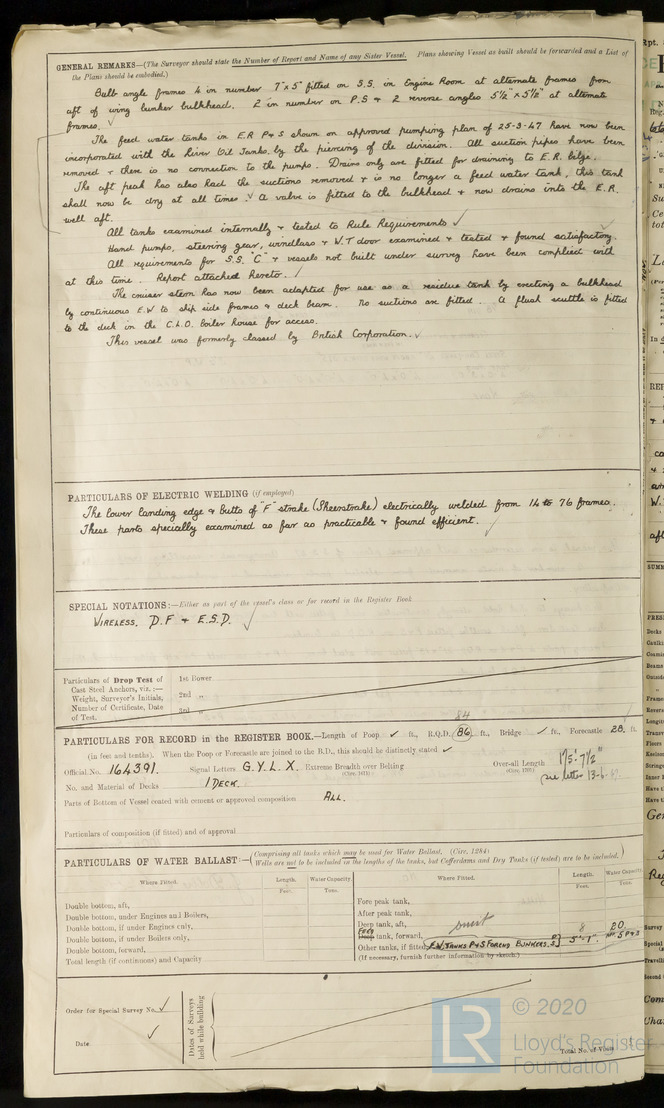 GENERAL REMARKS—(The Surveyor should state the Number of Report and Name of any Sister Vessel. Plans showing Vessel as built should be forwarded and a List of
the Plans should be embodied.)
Bulb angle frames 4 in number 7"x5" fitted on S.S. in Engine Room at alternate frames from
aft of wing bunker bulkhead. 2 in number on P.S & 2 reverse angles 5½"x5½" at alternate
frames. ✓
The feed water tanks in E.R P&S shown on approved pumping plan of 25-3-47 have now been
incorporated with the River Oil Tanks by the piercing of the division. All suction pipes have been
removed & there is no connection to the pumps. Drains only are fitted for draining to E.R. bilge.
The aft peak has also had the suctions removed & is no longer a feed water tank, this tank
shall now be dry at all times ✓ A valve is fitted to the bulkhead & now drains into the E.R.
well aft.
All tanks examined internally & tested to Rule Requirements ✓
Hand pumps, steering gear, windlass & W.T door examined & tested & found satisfactory.
All requirements for S.S. "C" & vessels not built under survey have been complied with
at this time. Report attached hereto. /
The cruiser stern has now been adapted for use as a residue tank by erecting a bulkhead
by continuous E.W to ship side frames & deck beam. No suctions are fitted. A flush scuttle is fitted
to the deck in the C.L.O. Boiler House for access.
This vessel was formerly classed by British Corporation. ✓
PARTICULARS OF ELECTRIC WELDING (if employed)
The lower landing edge & butts of "F" strake (Sheerstrake) electrically welded from 14 to 76 frames.
These parts specially examined as far as practicable & found efficient. ✓
SPECIAL NOTATIONS:—Either as part of the vessel's class or for record in the Register Book
WIRELESS. D.F & E.S.D. ✓
Particulars of Drop Test of
Cast Steel Anchors, viz.:—
Weight, Surveyor's Initials,
Number of Certificate, Date
of Test.
1st Bower
2nd „
3rd „
84
PARTICULARS FOR RECORD in the REGISTER BOOK.—Length of Poop ✓ ft., R.Q.D. 86 ft., Bridge ✓ ft., Forecastle 28. ft.
(in feet and tenths). When the Poop or Forecastle are joined to the B.D., this should be distinctly stated ✓
Official No. 164391. Signal Letters G.Y.L.X. Extreme Breadth over Belting Over-all Length 175'-7½"
(Circ. 1611) (Circ. 1703) see letter 13-6-
No. and Material of Decks 1 DECK.
Parts of Bottom of Vessel coated with cement or approved composition ALL.
Particulars of composition (if fitted) and of approval
PARTICULARS OF WATER BALLAST:—(Comprising all tanks which may be used for Water Ballast. (Circ. 1284)
Wells are not to be included in the lengths of the tanks, but Cofferdams and Dry Tanks (if tested) are to be included.)
Where Fitted. Length. Water Capacity. Where Fitted. Length. Water Capacity.
Feet. Tons. Feet. Tons.
Double bottom, aft,
Double bottom, under Engines and Boilers,
Double bottom, if under Engines only,
Double bottom, if under Boilers only,
Double bottom, forward,
Total length (if continuous) and Capacity
Fore peak tank,
After peak tank,
Deep tank, aft,
FEED tank, forward, 8 20
Other tanks, if fitted, F.W. TANKS P&S FORE BUNKERS. 5'-1"
(If necessary, furnish further information by sketch.)
Order for Special Survey No. ✓
Date ✓
Dates of Surveys
held while building
Total No. of Visits
LR
© 2020
Lloyd's Register
Foundation